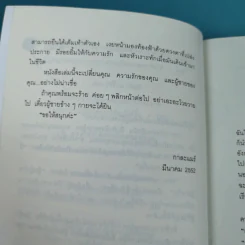 สามารถยืนได้เต็มเท้าตัวเอง เงยหน้ามองท้องฟ้าด้วยดวงตาที่เปล่ง
ประกาย ยังคงยิ้มให้กับความรัก และหัวเราะทักเมื่อมันเดินเข้ามา
ในชีวิต
หนังสือเล่มนี้จะเปลี่ยนคุณ ความรักของคุณ และผู้ชายของ
คุณ...อย่างไม่น่าเชื่อ
ถ้าคุณพร้อมจะร้าย ค่อย ๆ พลิกหน้าต่อไป อย่าเอะอะโวยวาย
ไป เดี๋ยวผู้ชายข้าง ๆ กายจะได้ยิน
"ขอให้สนุกค่ะ"
กาละแมร์
มีนาคม 2552